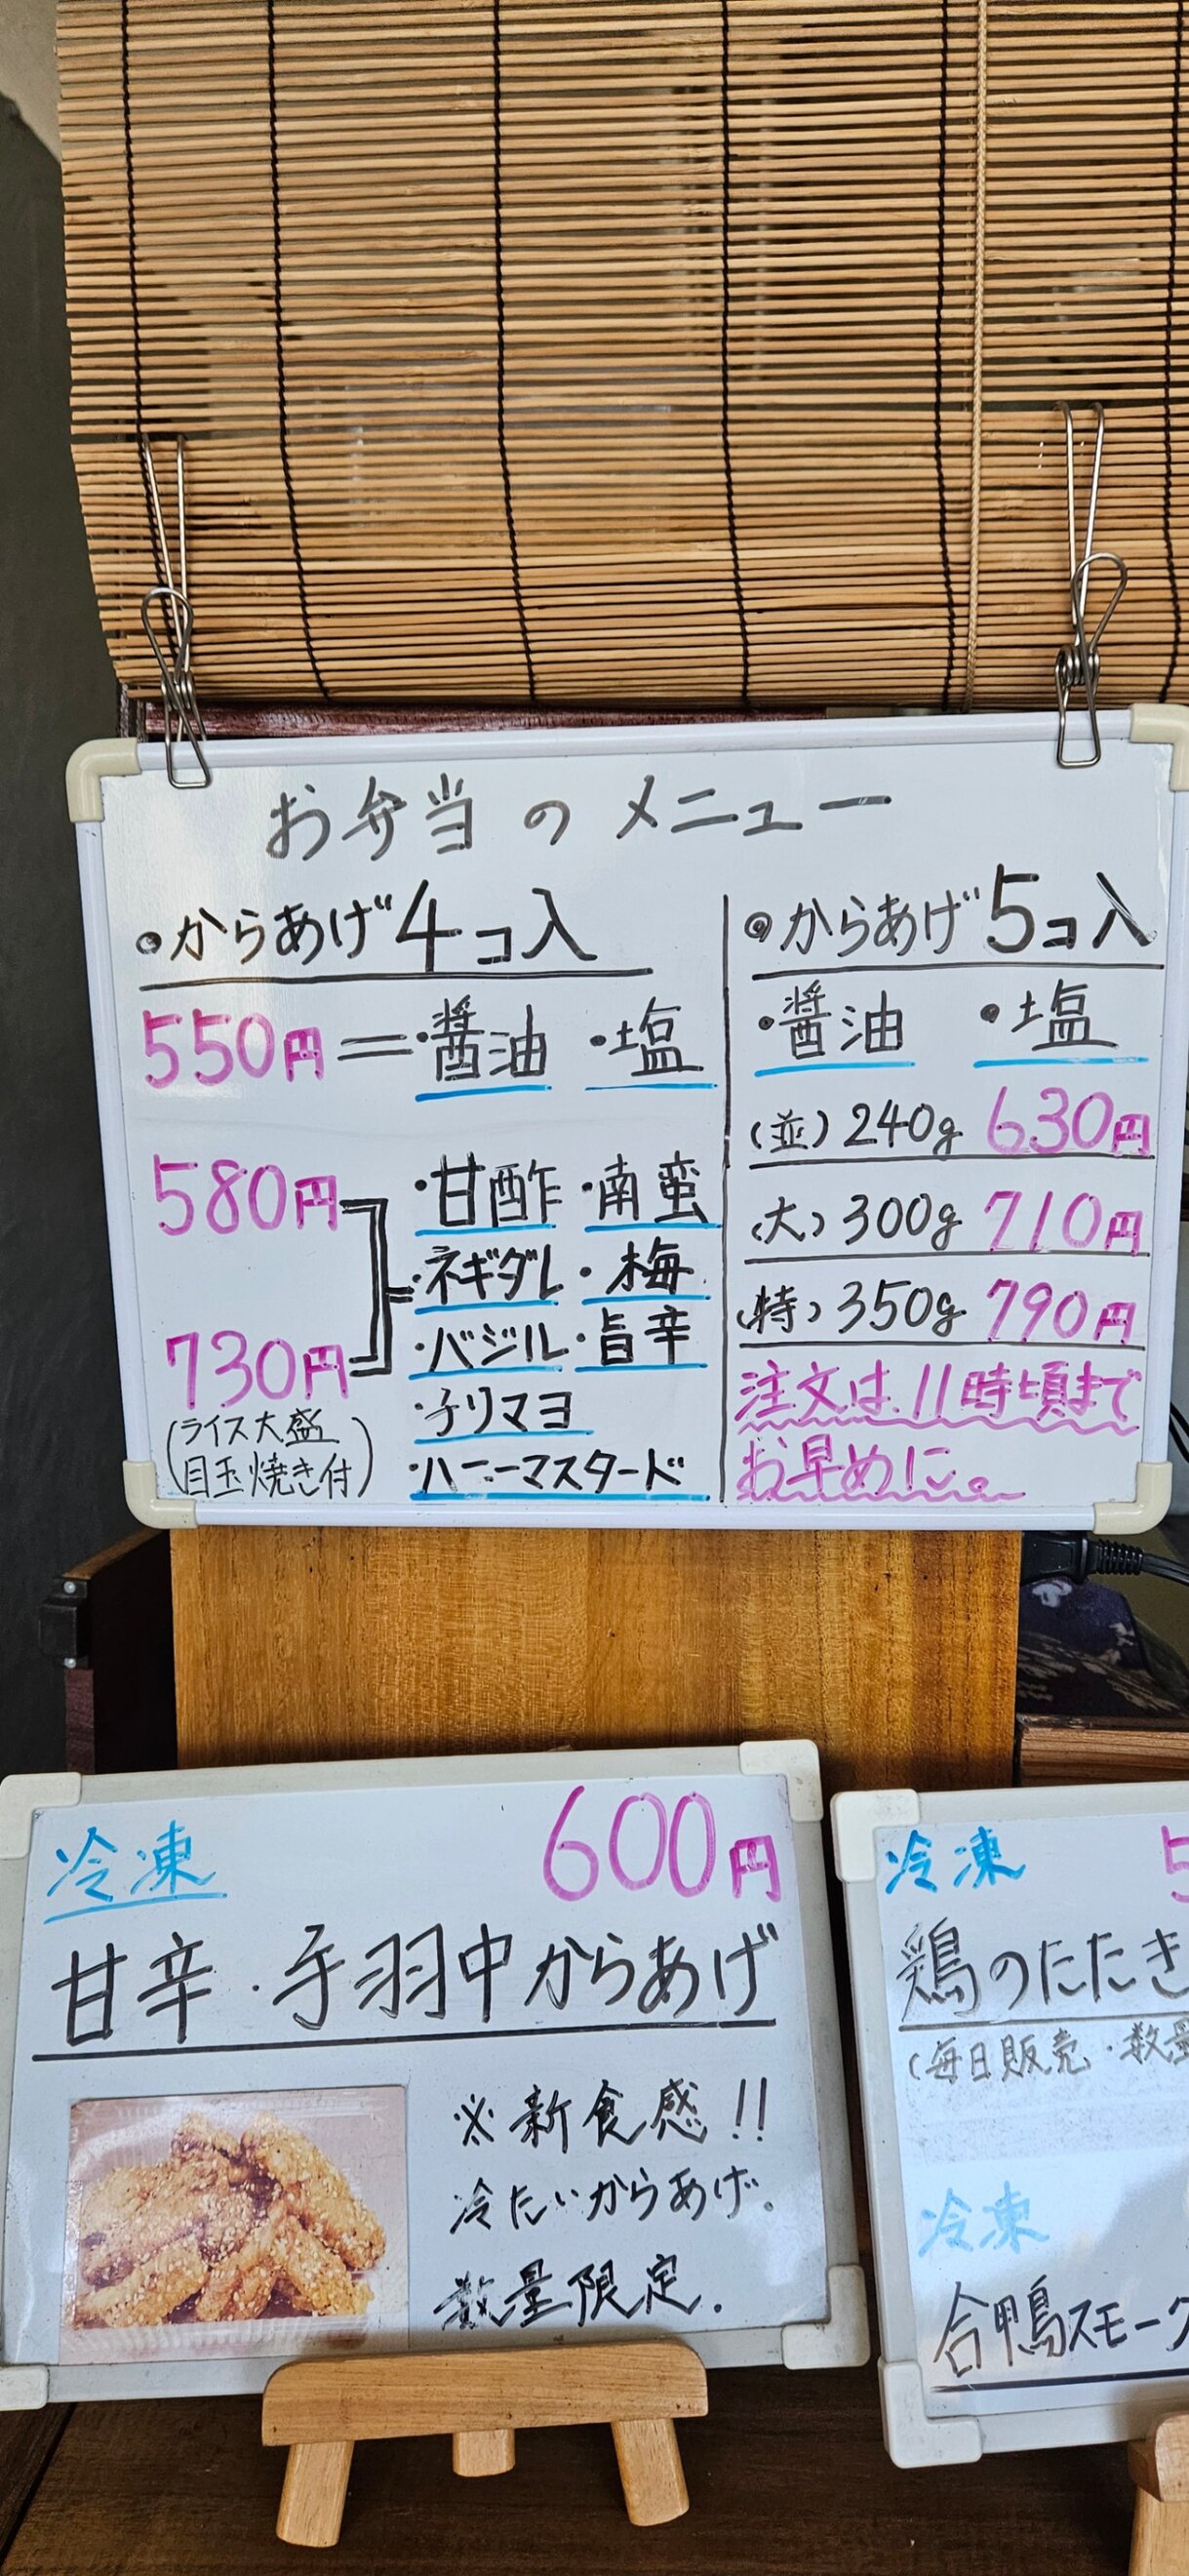 お弁当のメニュー
・からあげ4コ入
550円＝・醤油 ・塩
580円
・甘酢・南蛮
・ネギダレ・梅
730円
・バジル・旨辛
(ライス大盛
目玉焼き付)
・チリマヨ
・ハニーマスタード
◎からあげ5コ入
・醤油 ・塩
(並)240g 630円
(大)300g 710円
(特)350g 790円
注文は、11時頃まで
お早めに。
冷凍 600円
甘辛・手羽中からあげ
※新食感!!
冷たいからあげ。
数量限定.
冷凍 5
鶏のたたき
(毎日販売・数量
冷凍
合鴨スモーク